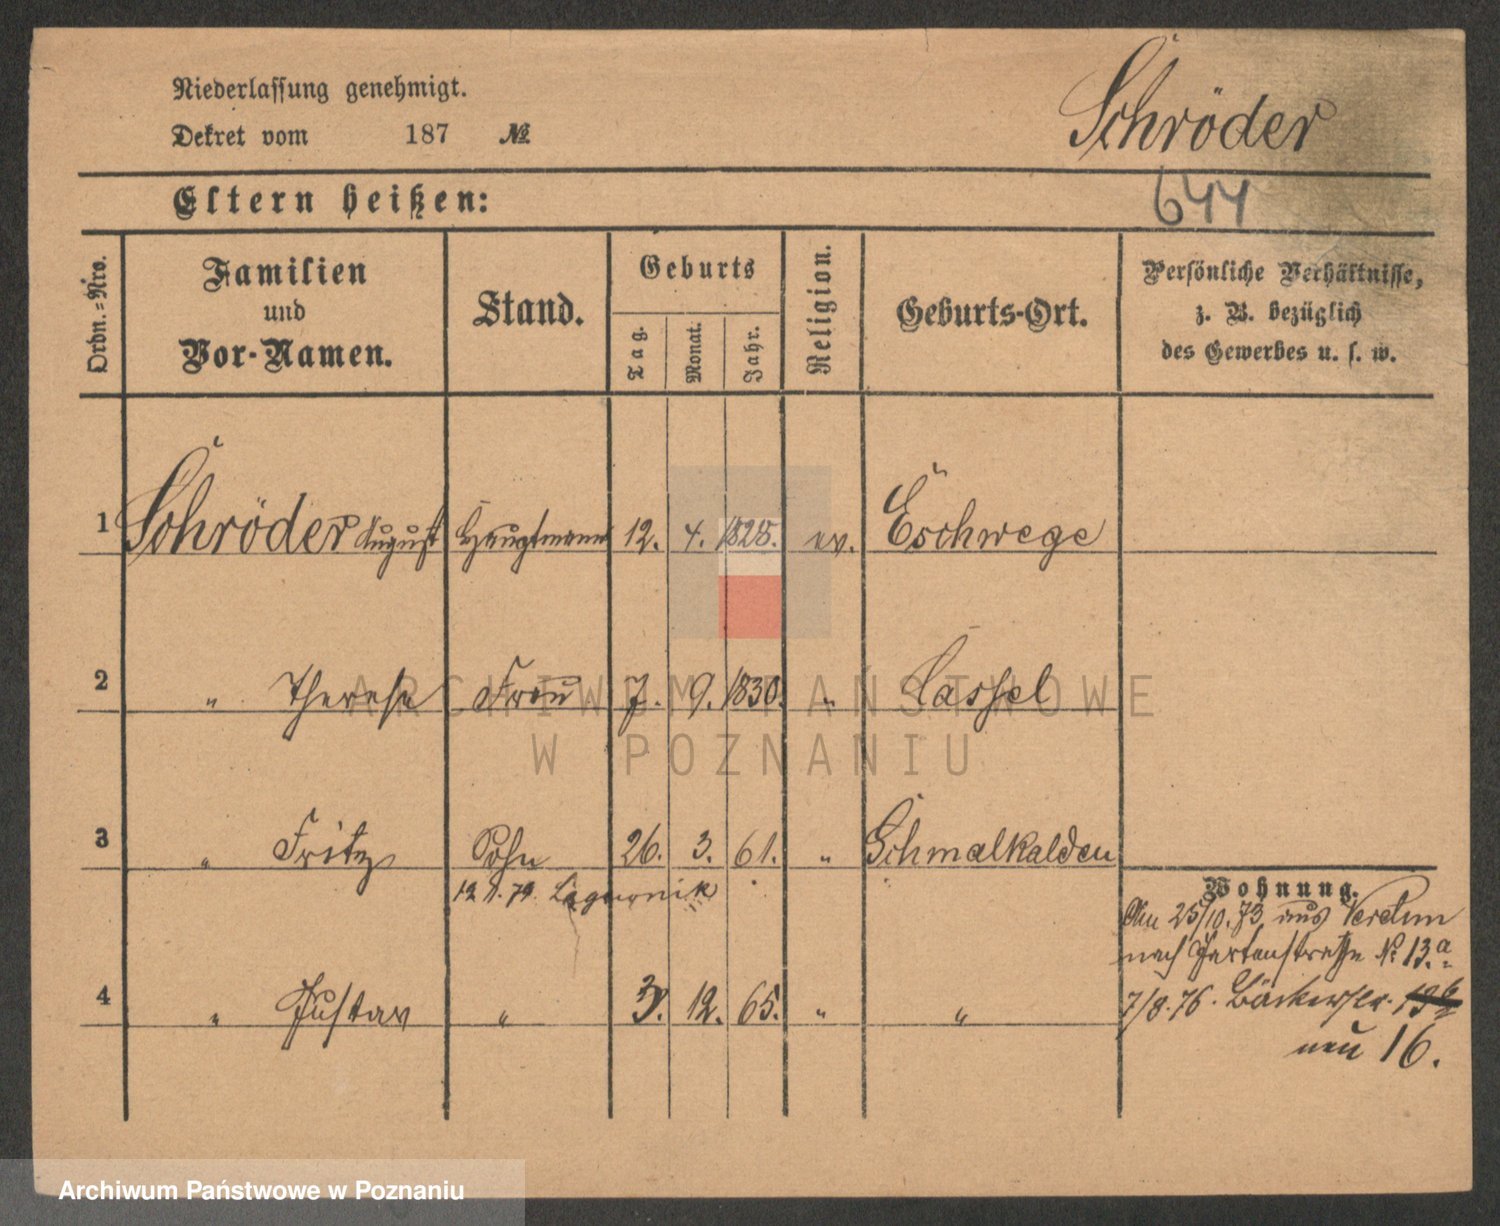 Niederlassung genehmigt.
Dekret vom 187 №
Schröder
644
Eltern heißen:
Ordn.=Nro.
Familien
und
Vor-Namen.
Stand.
Geburts
Tag.
Monat.
Jahr.
Religion.
Geburts-Ort.
Persönliche Verhältnisse,
z. B. bezüglich
des Gewerbes u. s. w.
1 Schröder August Hauptmann 12. 4. 1825. ev. Eschwege
2 " Therese Frau 7. 9. 1830. " Cassel
3 " Fritz Sohn 26. 3. 61. " Schmalkalden
Wohnung.
Am 25/10.73 aus Verdun
nach Gartenstraße № 13.a
4 " Gustav " 3. 12. 65. " "
7/8.76. Bäckerstr.
neu 16.
ARCHIWUM PAŃSTWOWE
W POZNANIU
Archiwum Państwowe w Poznaniu